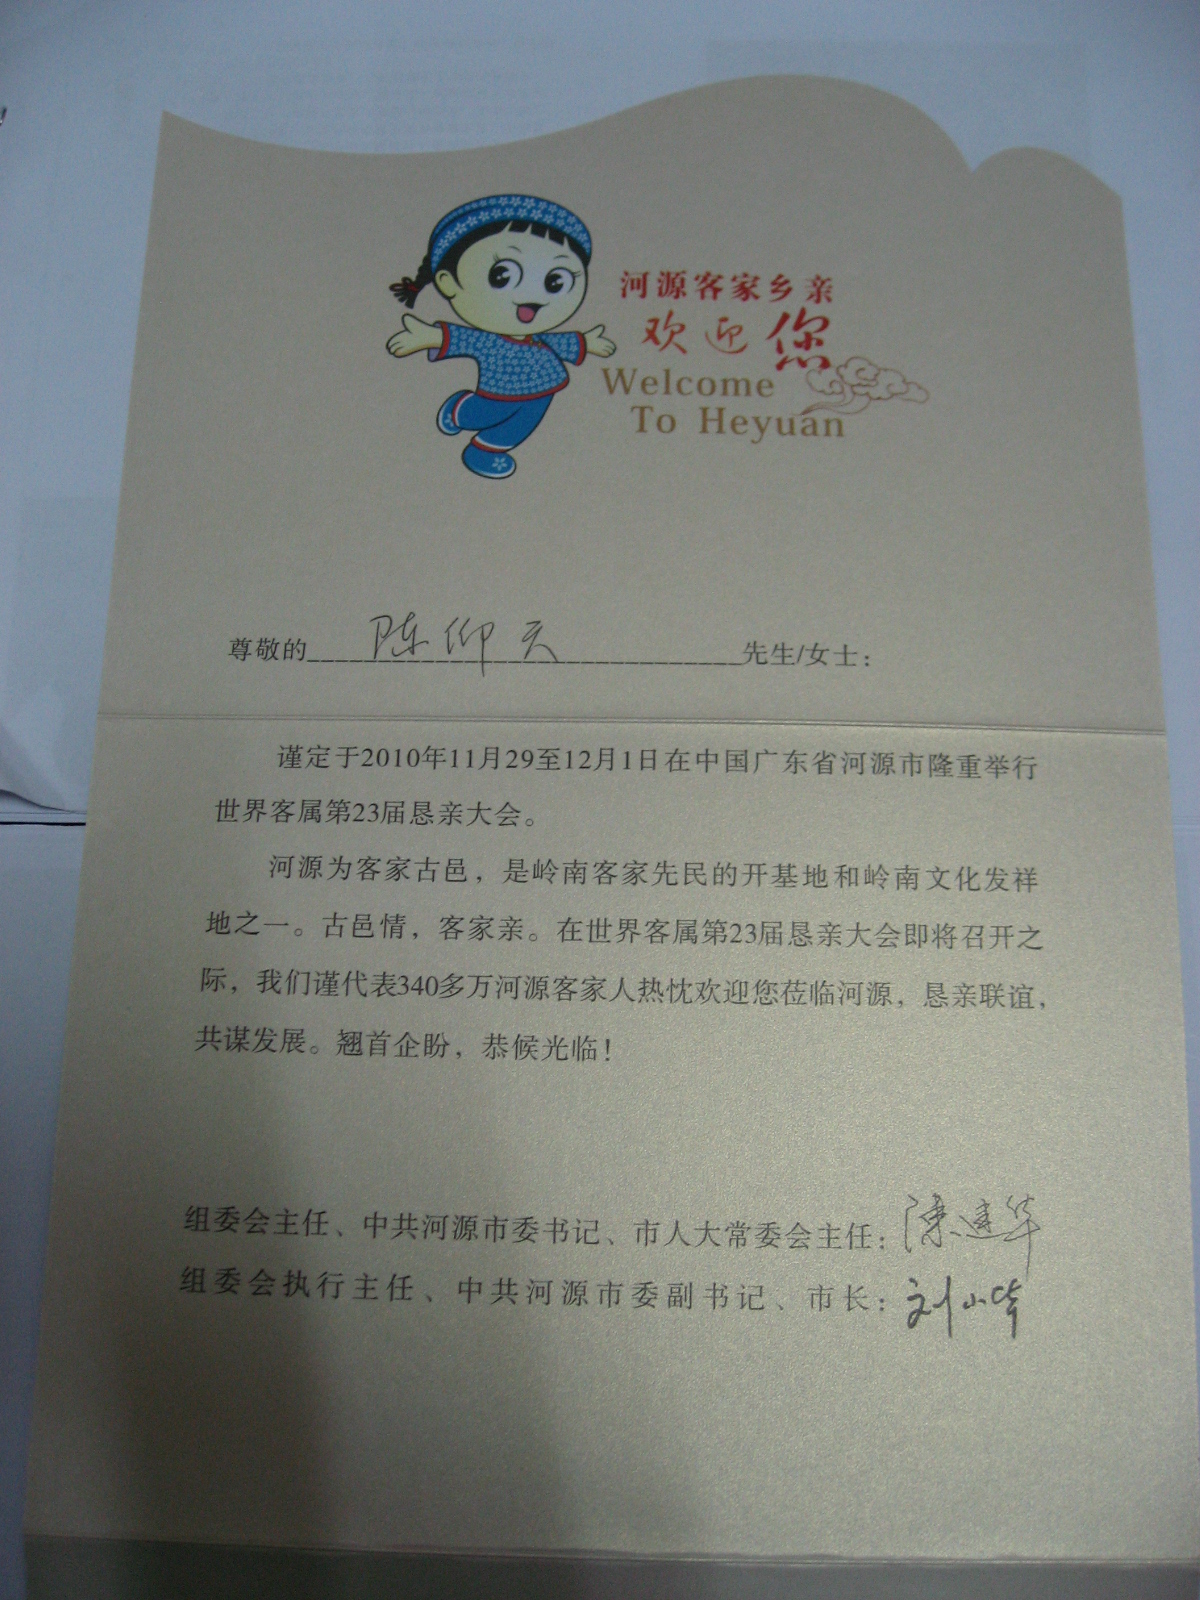 河源客家乡亲
欢迎您
Welcome
To Heyuan
尊敬的 陈仰天 先生/女士：
谨定于2010年11月29至12月1日在中国广东省河源市隆重举行
世界客属第23届恳亲大会。
河源为客家古邑，是岭南客家先民的开基地和岭南文化发祥
地之一。古邑情，客家亲。在世界客属第23届恳亲大会即将召开之
际，我们谨代表340多万河源客家人热忱欢迎您莅临河源，恳亲联谊，
共谋发展。翘首企盼，恭候光临！
组委会主任、中共河源市委书记、市人大常委会主任：陳建华
组委会执行主任、中共河源市委副书记、市长：刘小华